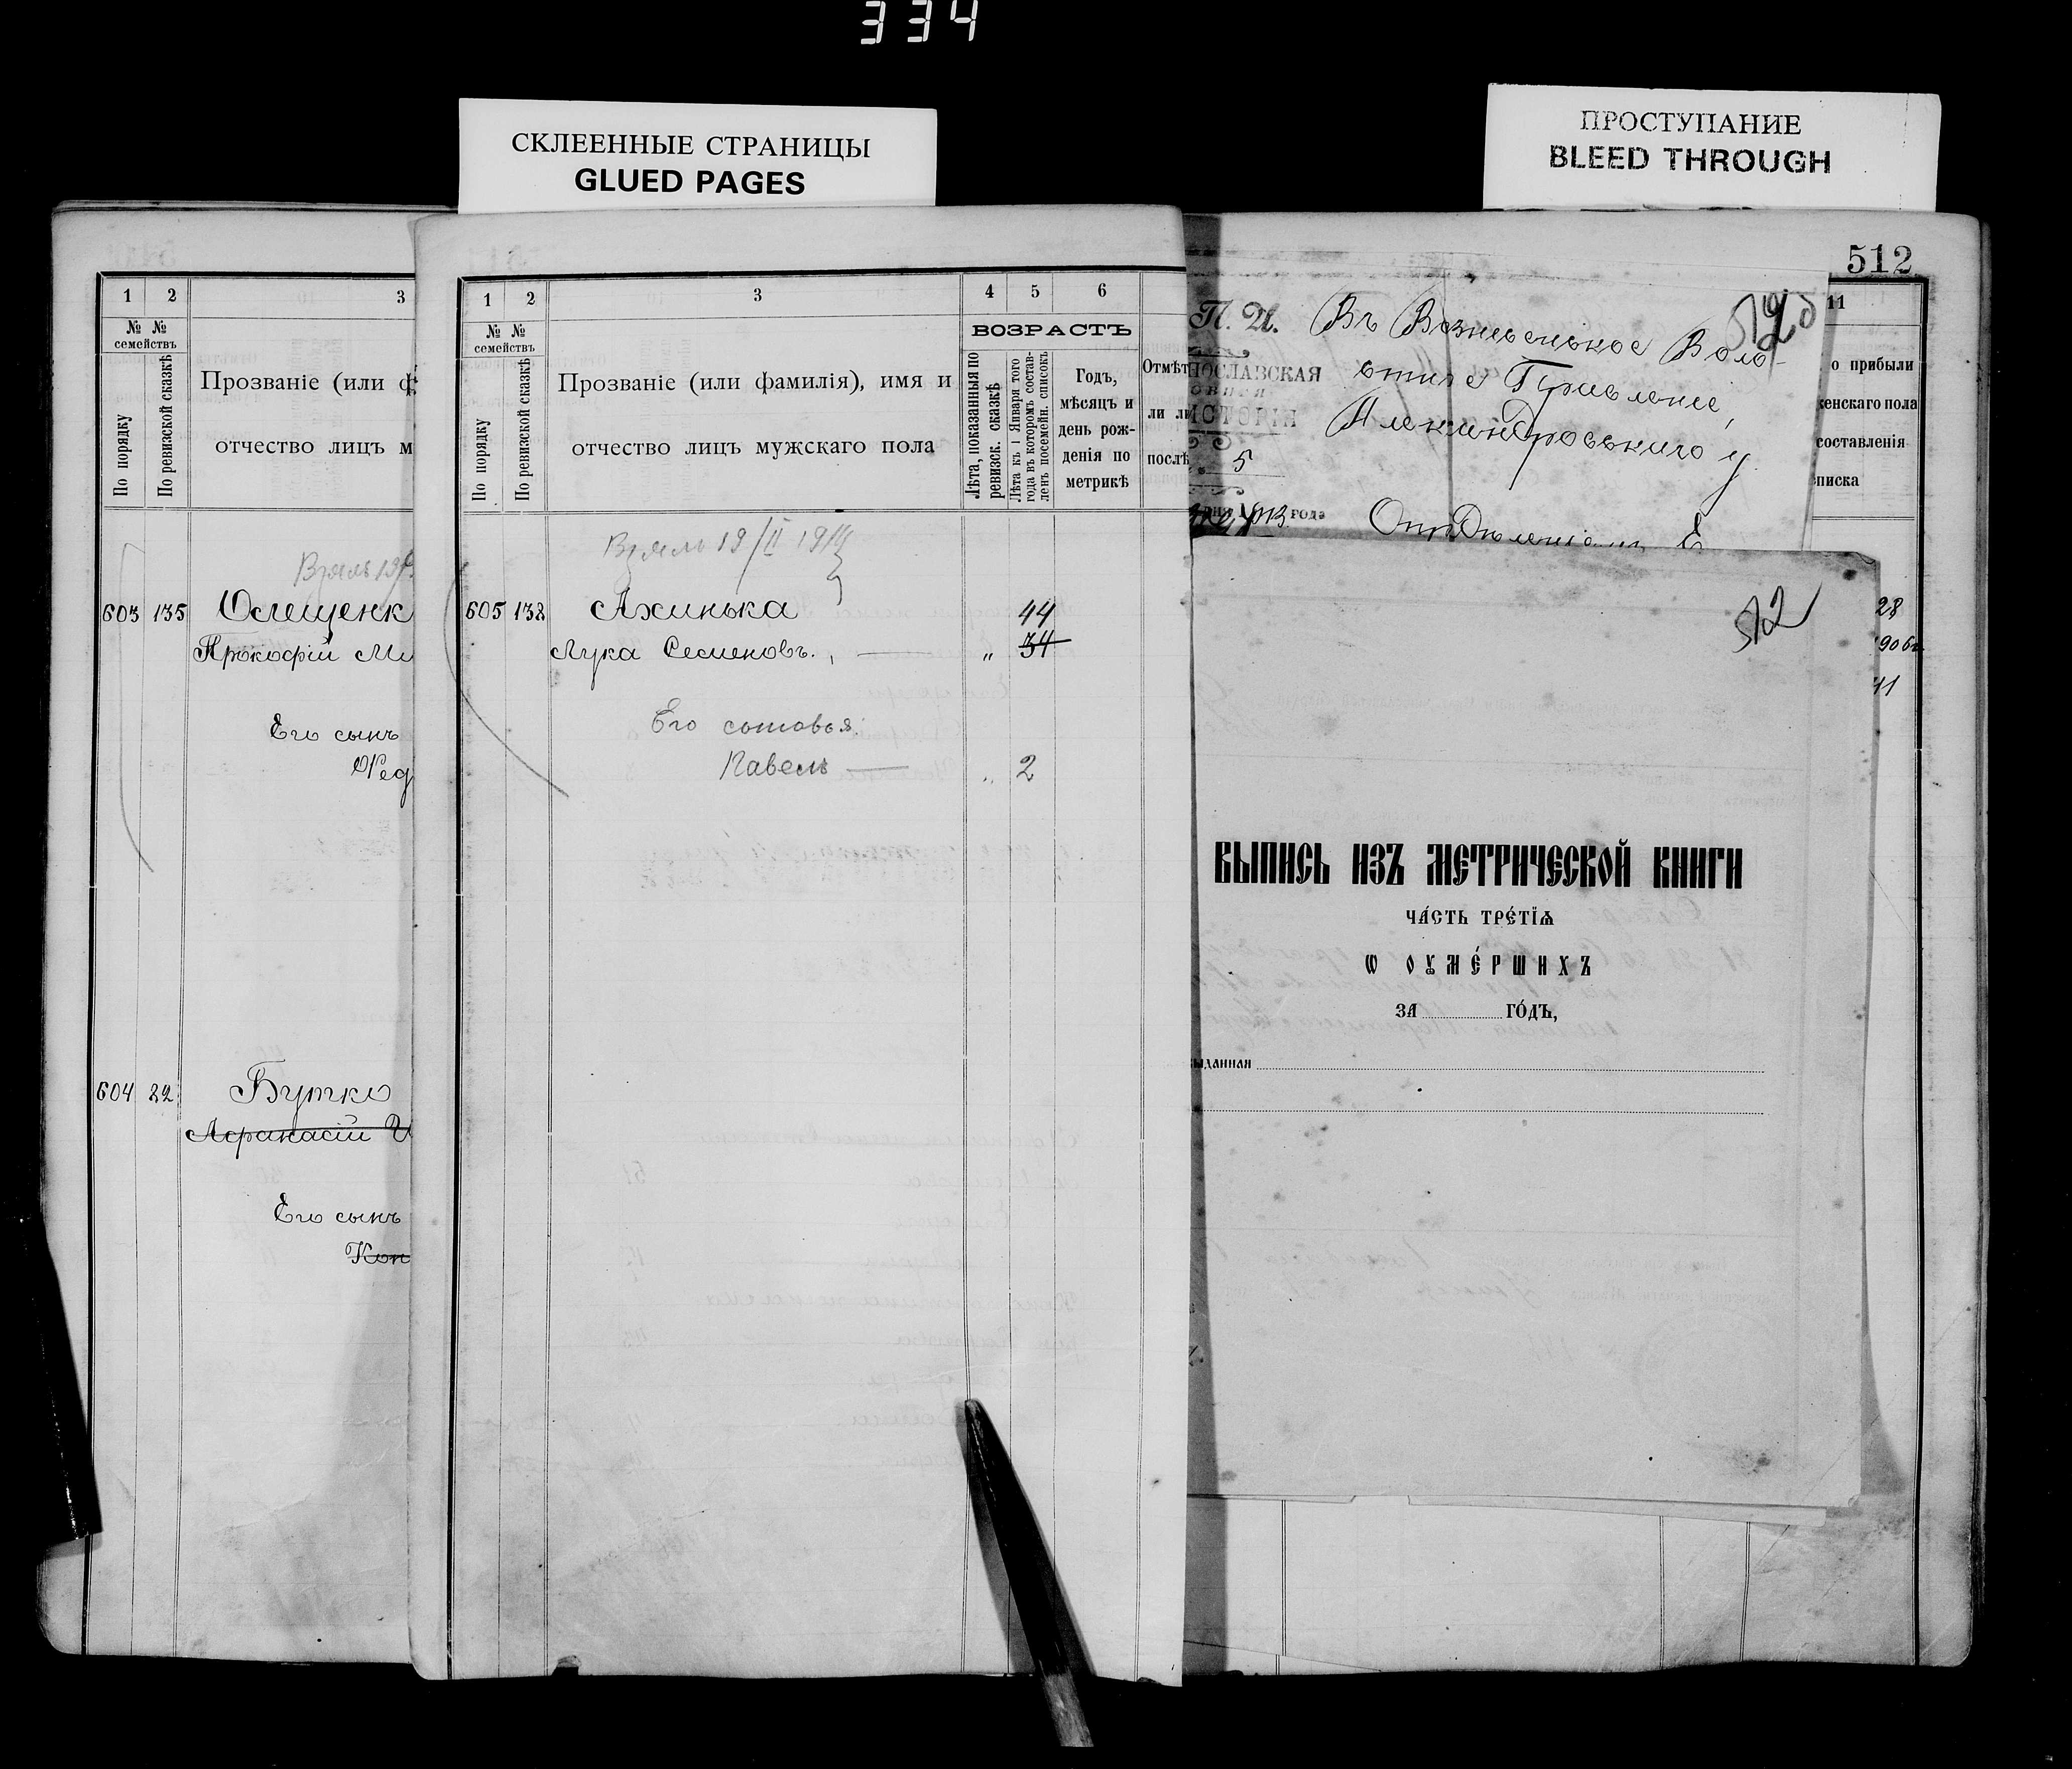 334
СКЛЕЕННЫЕ СТРАНИЦЫ
GLUED PAGES
ПРОСТУПАНИЕ
BLEED THROUGH
1 2 3
№ № семействъ
По порядку
По ревизской сказкѣ
Прозваніе (или ф
отчество лицъ м
603 135 Олещенк
Прокофій Ми
Его сынъ
Фед
604 22 Бутко
Афанасій И
Его сынъ
Кон
1 2 3 4 5 6
№ № семействъ
По порядку
По ревизской сказкѣ
Прозваніе (или фамилія), имя и
отчество лицъ мужскаго пола
ВОЗРАСТЪ
Лѣта, показанныя по ревизск. сказкѣ
Лѣта къ 1 Января того года въ которомъ составленъ посемейн. списокъ
Годъ,
мѣсяцъ и
день рож-
денія по
метрикѣ
Отмѣт
ли ли
послѣ
19/II 1914
605 138 Ахинька 44
Лука Семеновъ. „ 34
Его сыновья:
Павелъ „ 2
512
П. И. Въ Вознесенское Воло-
стное Правленіе,
НОСЛАВСКАЯ
ИСТОРІЯ
Александровскаго у.
5
1913 года
Опредѣленіемъ Е
11
о прибыли
женскаго пола
составленія
писка
28
906г
11
512
ВЫПИСЬ ИЗЪ МЕТРИЧЕСКОЙ КНИГИ
ЧА́СТЬ ТРЕ́ТІѦ
Ѡ ОУМЕ́РШИХЪ
ЗА ГО́ДЪ,
ЫДАННАЯ